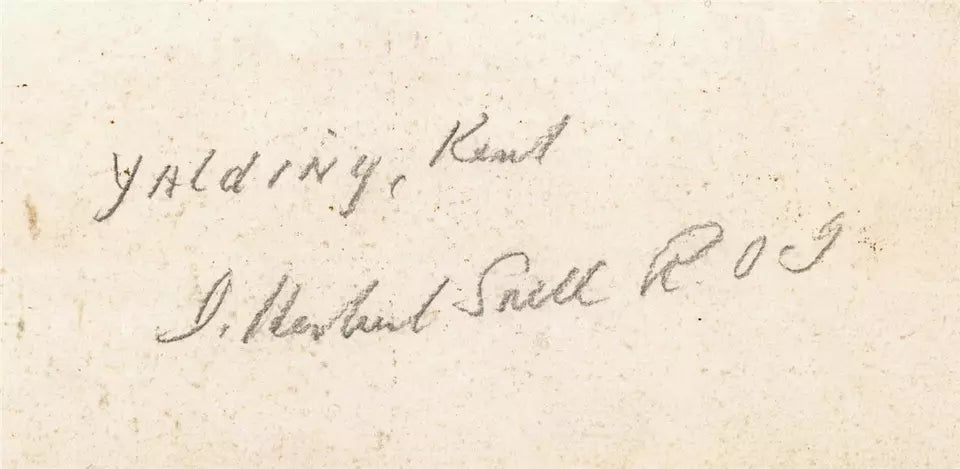 Yalding, Kent
J. Herbert Snell R O I